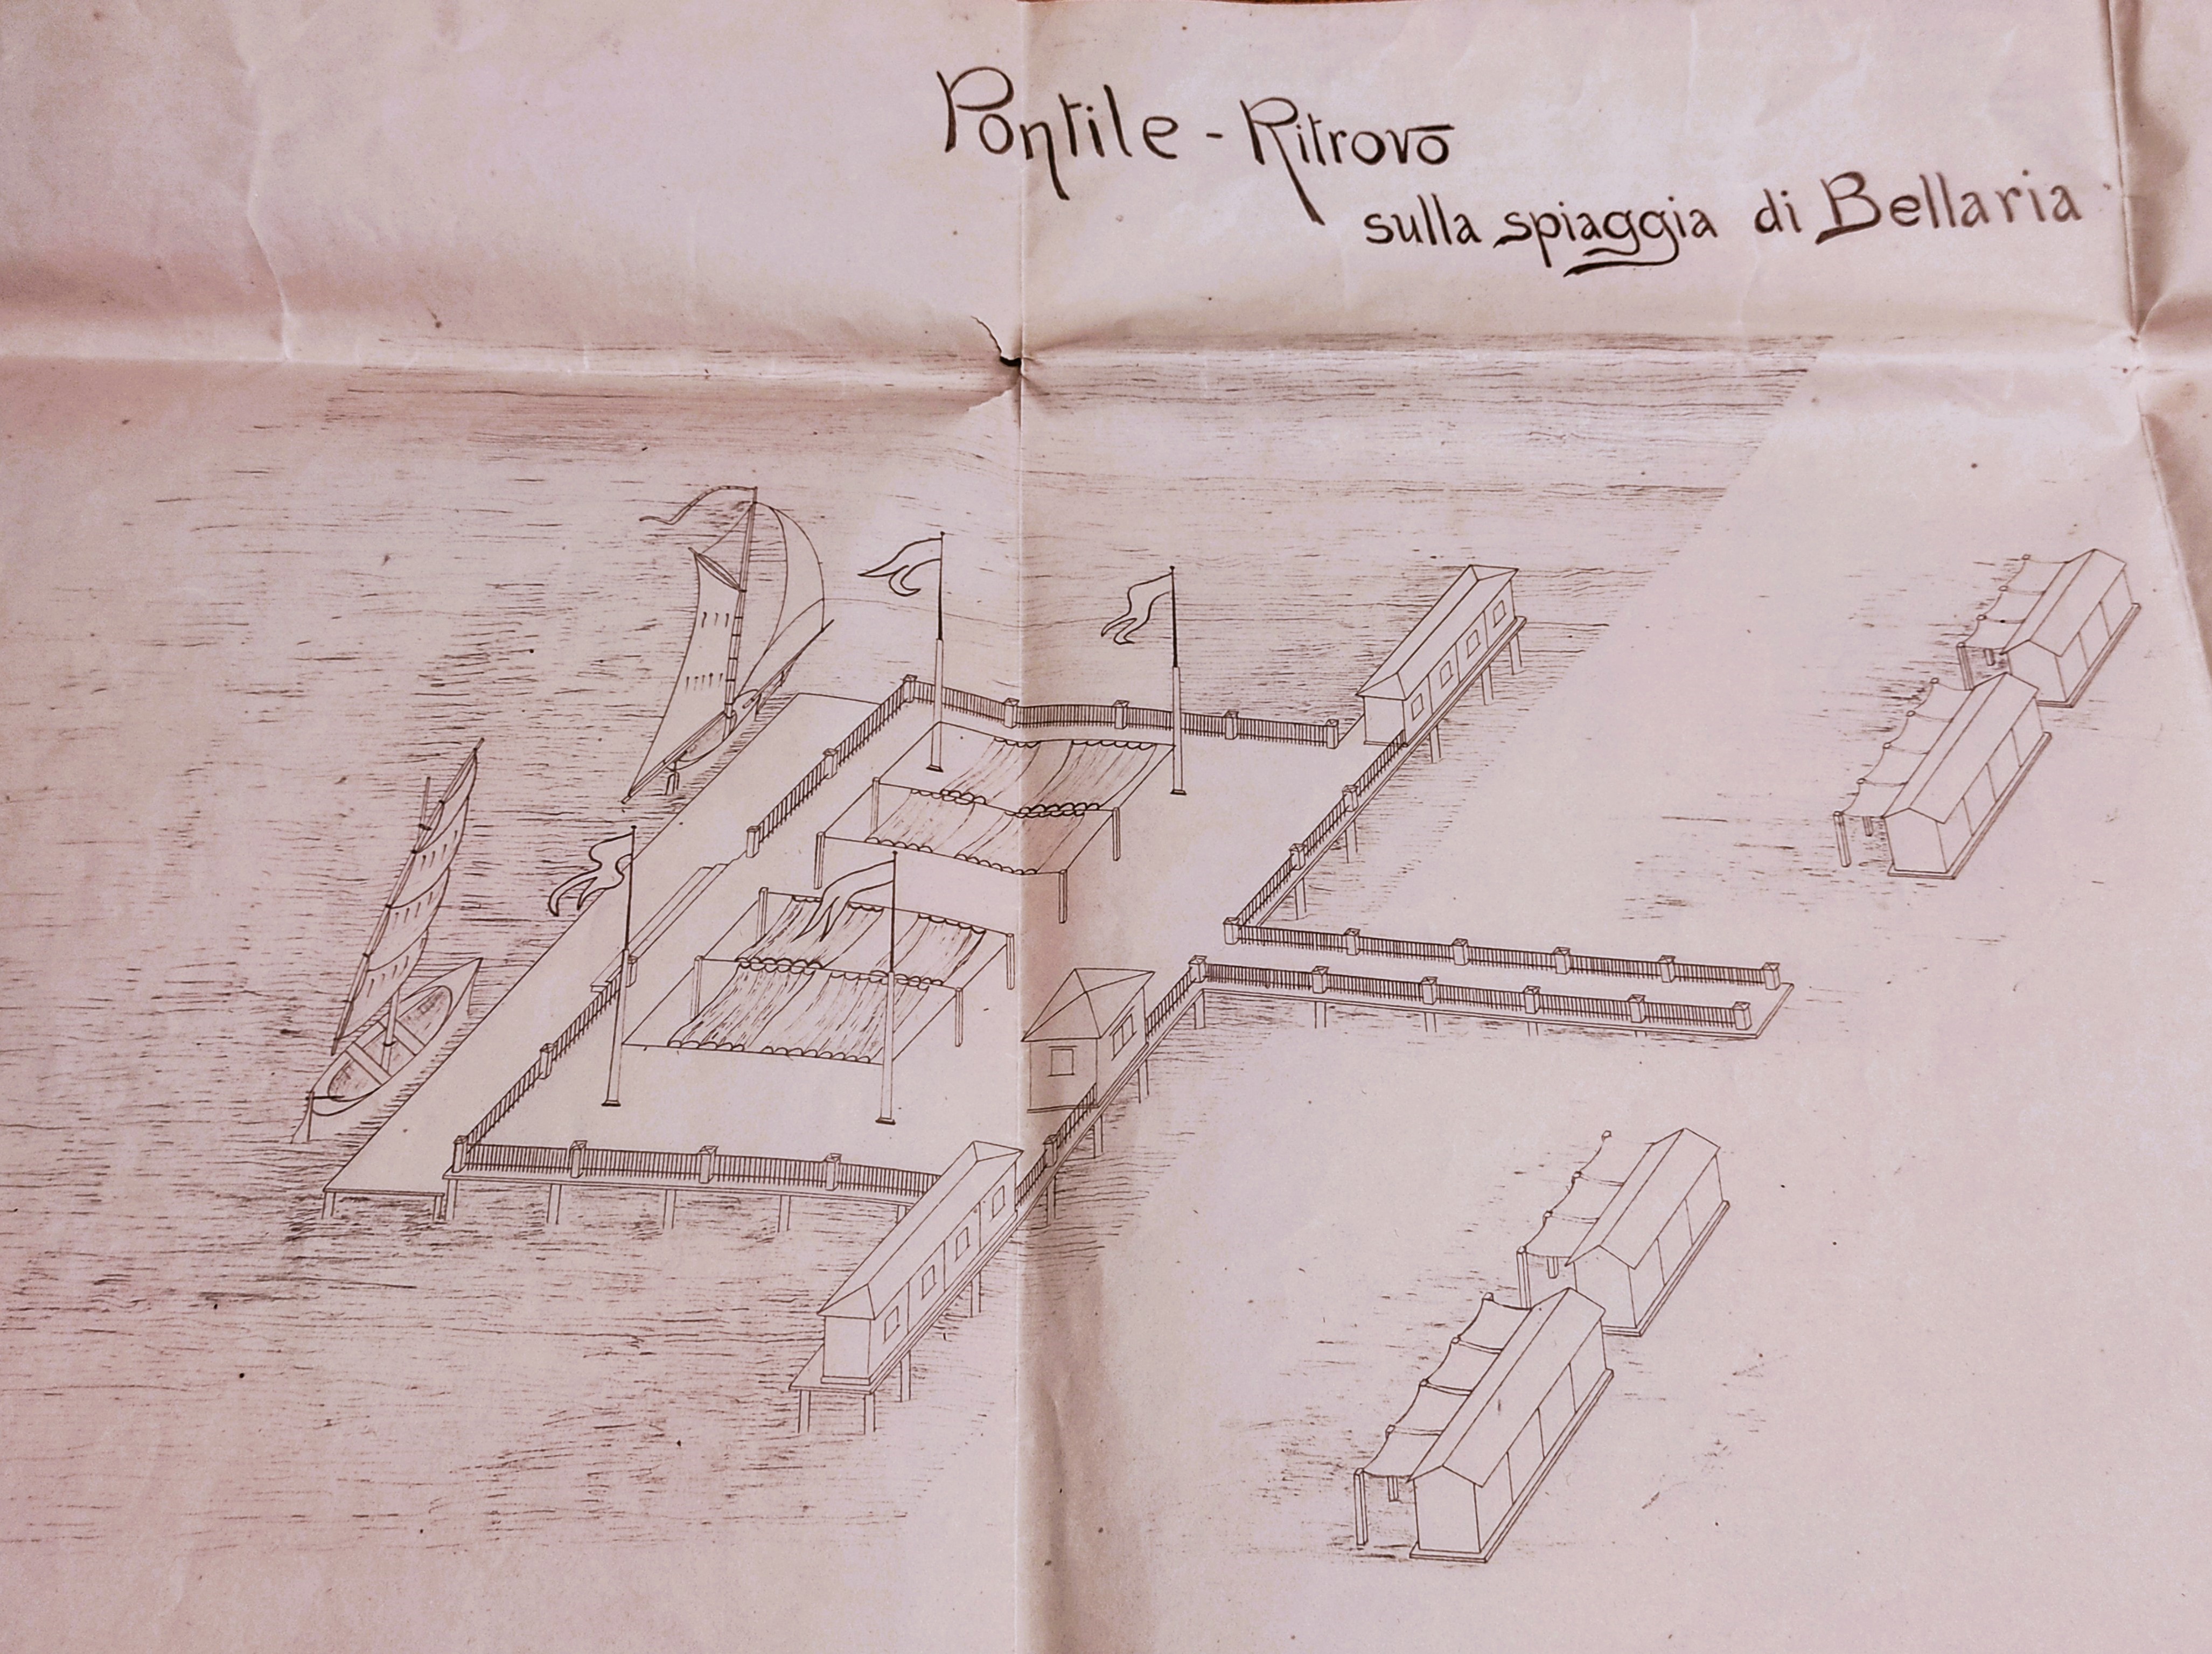 Pontile - Ritrovo
sulla spiaggia di Bellaria